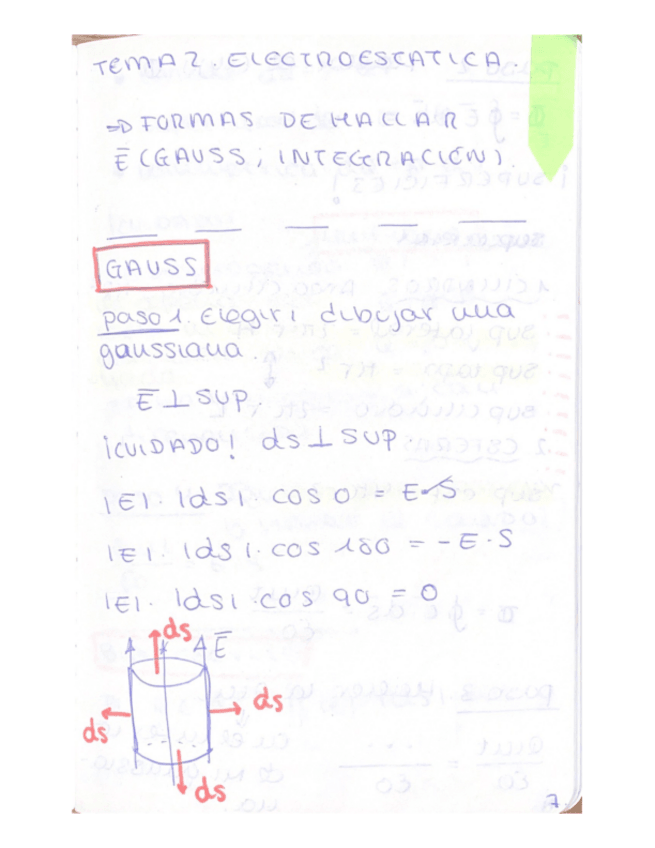 TEMA 2. ELECTROESTATICA.
⇒ FORMAS DE HALLAR
E̅ (GAUSS; INTEGRACIÓN).
GAUSS
paso 1. Elegir i dibujar una
gaussiana.
E̅ ⊥ SUP.
¡CUIDADO! ds ⊥ SUP
|E|. |ds|. cos 0 = E·S
|E|. |ds|. cos 180 = - E.S
|E|. |ds|. cos 90 = 0
ds
E̅
ds
ds
ds
7